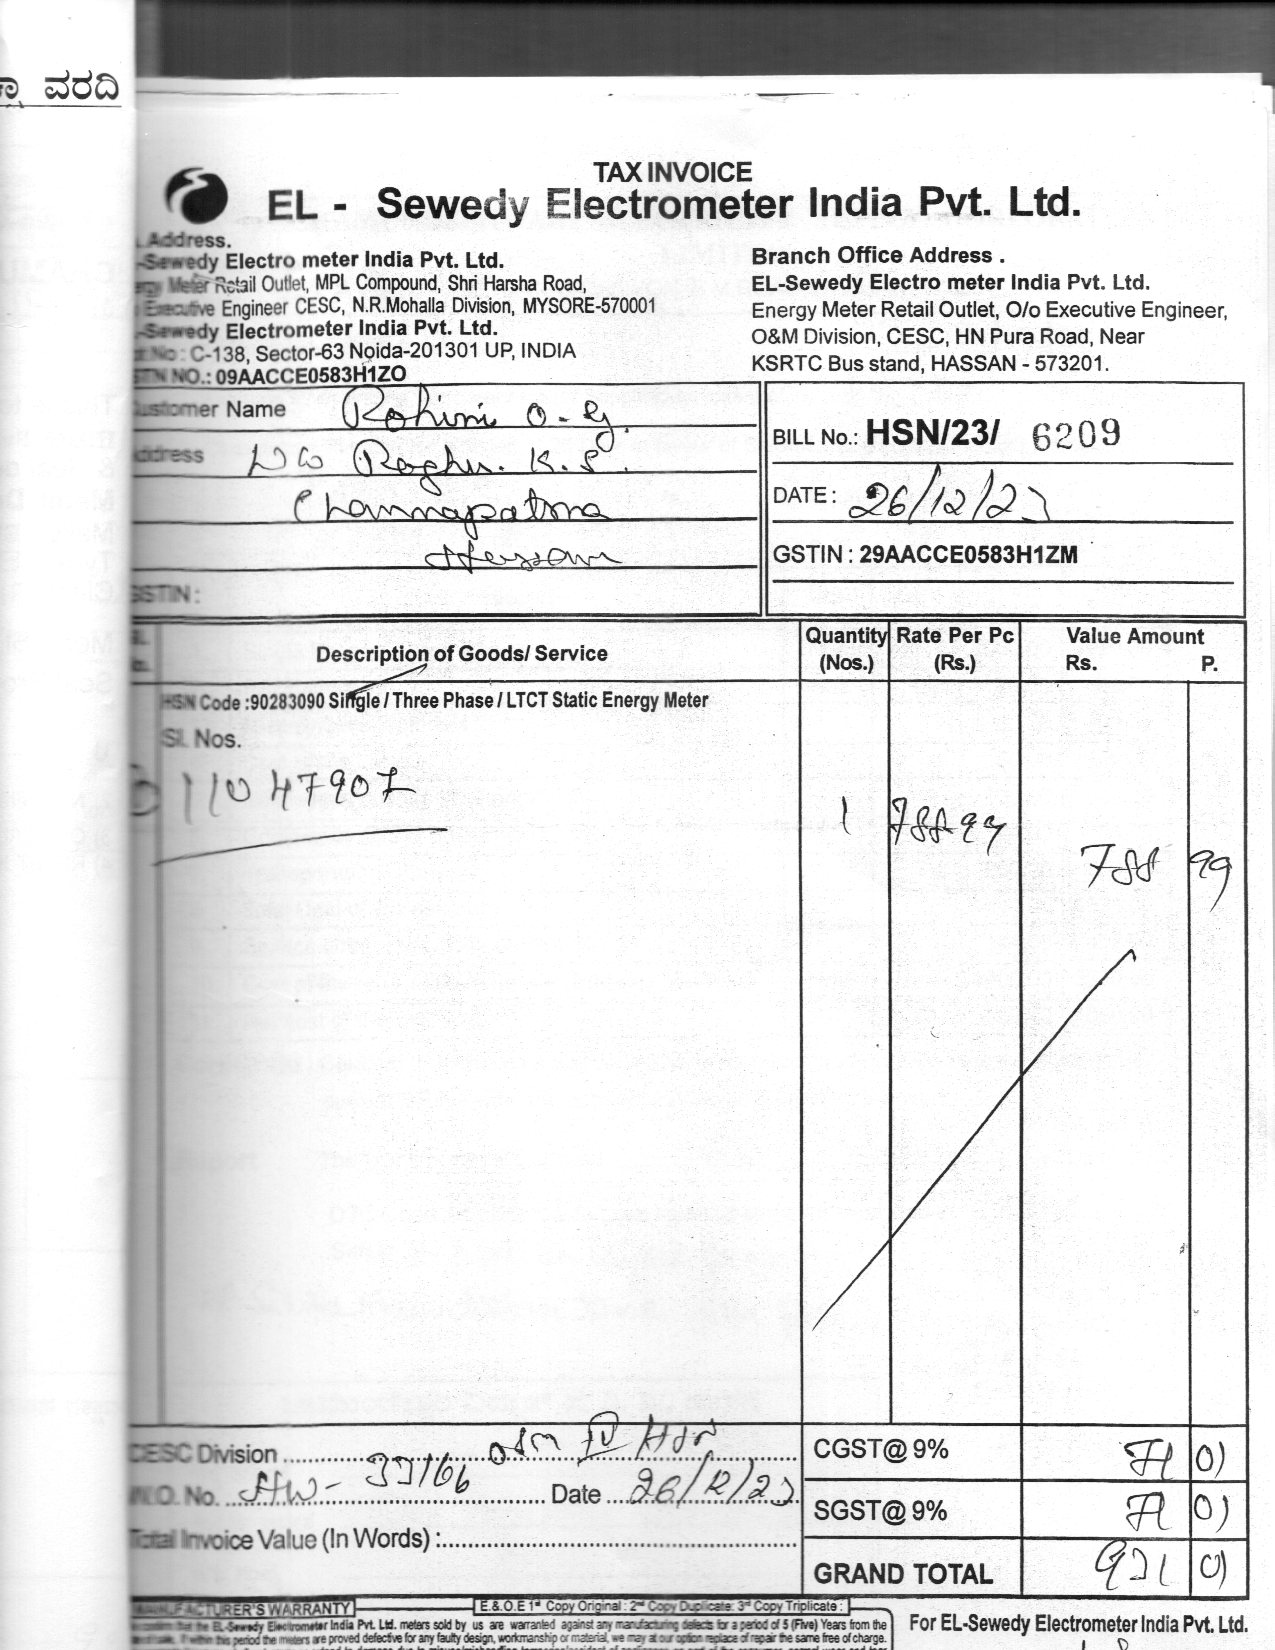 ವರದಿ
TAX INVOICE
EL - Sewedy Electrometer India Pvt. Ltd.
Address.
-Sewedy Electro meter India Pvt. Ltd.
Meter Retail Outlet, MPL Compound, Shri Harsha Road,
Executive Engineer CESC, N.R.Mohalla Division, MYSORE-570001
-Sewedy Electrometer India Pvt. Ltd.
No : C-138, Sector-63 Noida-201301 UP, INDIA
NO.: 09AACCE0583H1ZO
Branch Office Address .
EL-Sewedy Electro meter India Pvt. Ltd.
Energy Meter Retail Outlet, O/o Executive Engineer,
O&M Division, CESC, HN Pura Road, Near
KSRTC Bus stand, HASSAN - 573201.
Customer Name Rohini O. G.
Address W/o Raghu. K. S.
Channapatna
Hassan
GSTIN :
BILL No.: HSN/23/ 6209
DATE : 26/12/23
GSTIN : 29AACCE0583H1ZM
Description of Goods/ Service
Quantity (Nos.)
Rate Per Pc (Rs.)
Value Amount
Rs. P.
HSN Code :90283090 Single / Three Phase / LTCT Static Energy Meter
Sl. Nos.
11047907
1 788-99 788 99
CESC Division
W.O. No. Date 26/12/23
Total Invoice Value (In Words) :
CGST@ 9% 71 01
SGST@ 9% 71 01
GRAND TOTAL 931 01
MANUFACTURER'S WARRANTY
E.&.O.E 1st Copy Original : 2nd Copy Duplicate: 3rd Copy Triplicate :
the EL-Sewedy Electrometer India Pvt. Ltd. meters sold by us are warranted against any manufacturing defects for a period of 5 (Five) Years from the
period the meters are proved defective for any faulty design, workmanship or material, we may at our option replace of repair the same free of charge.
For EL-Sewedy Electrometer India Pvt. Ltd.